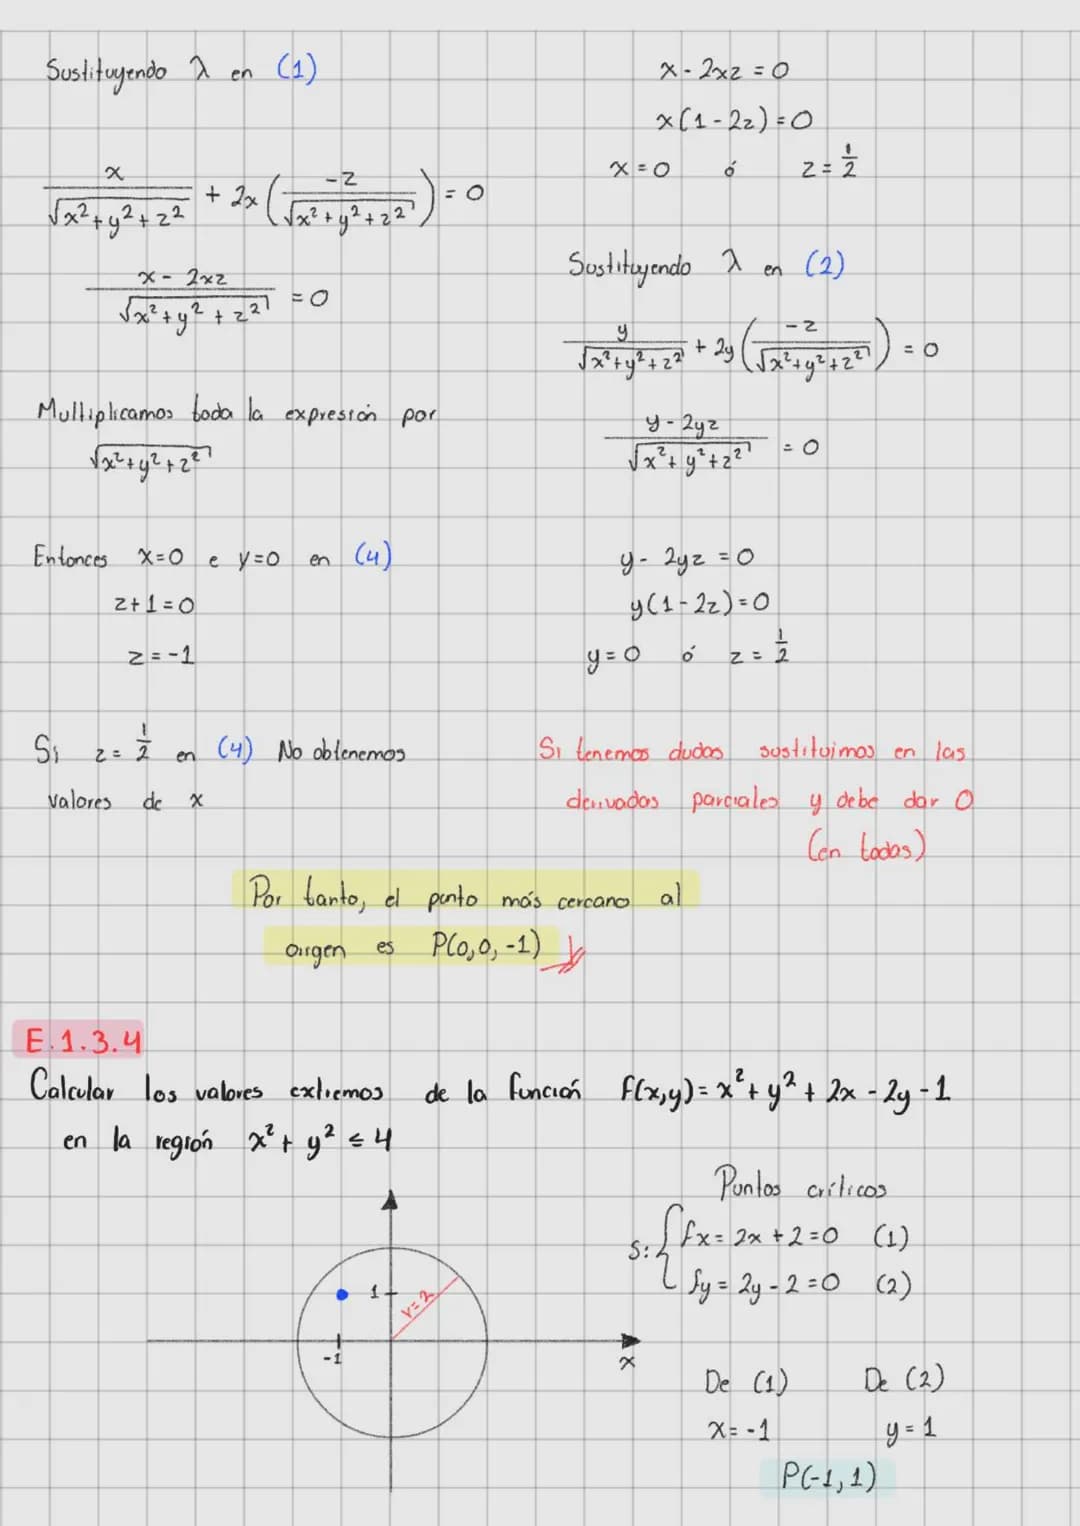 Sustituyendo λ en (1)
x / √(x²+y²+z²) + 2x (-z / √(x²+y²+z²)) = 0
x - 2xz / √(x²+y²+z²) = 0
Multiplicamos toda la expresión por
√(x²+y²+z²)
x - 2xz = 0
x(1-2z) = 0
x=0 ó z = 1/2
Sustituyendo λ en (2)
y / √(x²+y²+z²) + 2y (-z / √(x²+y²+z²)) = 0
y - 2yz / √(x²+y²+z²) = 0
y - 2yz = 0
y(1-2z) = 0
y=0 ó z = 1/2
Entonces x=0 e y=0 en (4)
z+1=0
z=-1
Si z = 1/2 en (4) No obtenemos
valores de x
Si tenemos dudas sustituimos en las
derivadas parciales y debe dar 0
(en todas)
Por tanto, el punto más cercano al
origen es P(0,0,-1)
E.1.3.4
Calcular los valores extremos de la función f(x,y) = x² + y² + 2x - 2y - 1
en la región x² + y² ≤ 4
1
r=2
-1
x
Puntos críticos
S: { fx = 2x + 2 = 0 (1)
fy = 2y - 2 = 0 (2)
De (1) De (2)
x = -1 y = 1
P(-1,1)